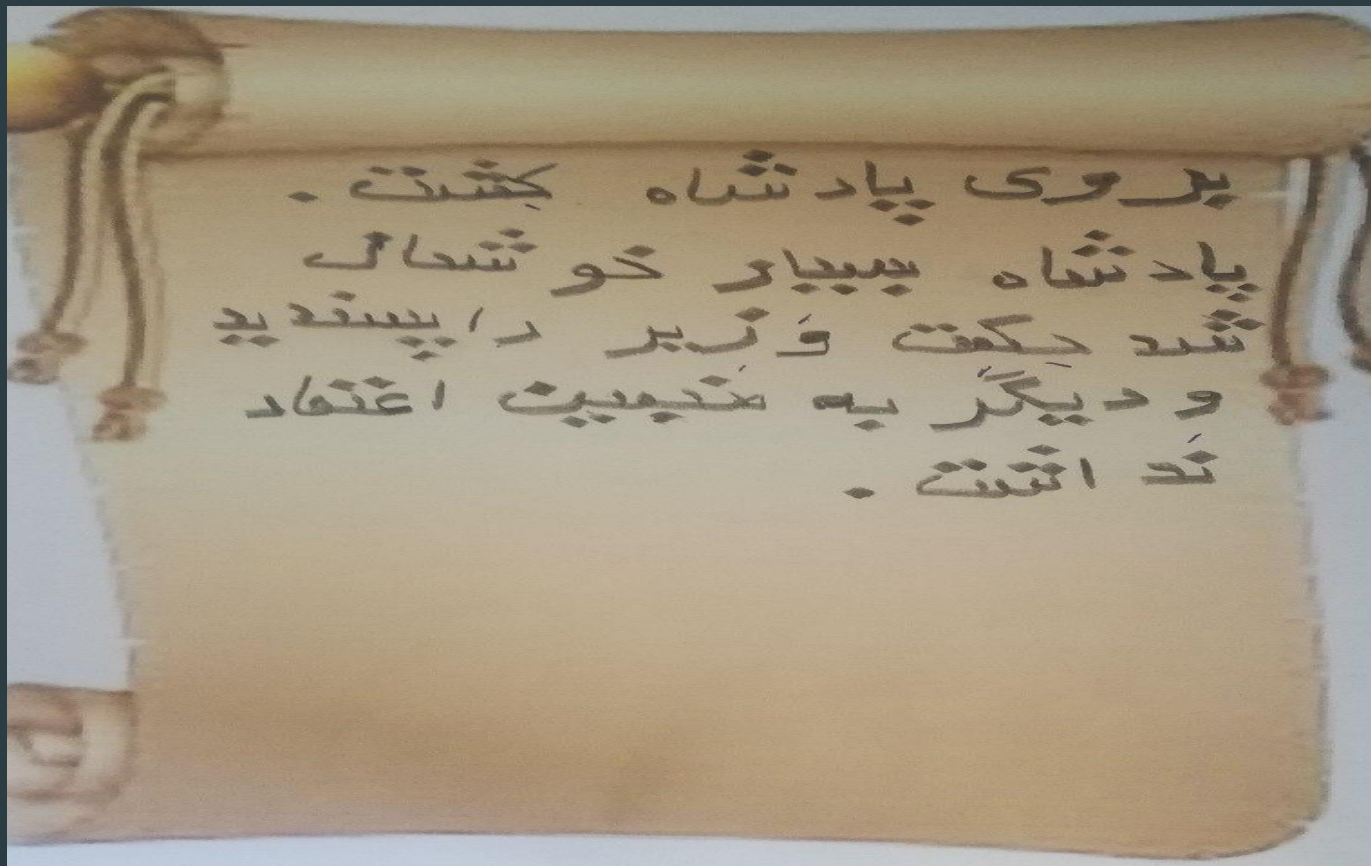 بروی پادشاه کِشت.
پادشاه بسیار خو شحال
شد حِکمت وَزیر را پسندید
و دیگر به اعتماد
نَد اشت.